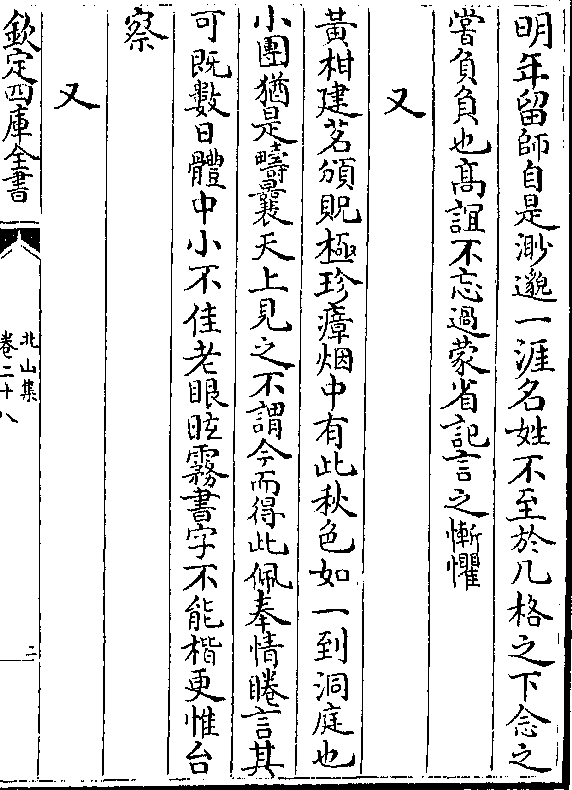 明年留師自是渺邈一涯名姓不至於几格之下念之
嘗負負也高誼不忘過蒙省記言之慚懼
又
黃柑建茗頒貺極珍瘴烟中有此秋色如一到洞庭也
小團猶是疇曩天上見之不謂今而得此佩奉情睠言其
可既數日體中小不佳老眼眩霧書字不能楷更惟台
察
又
欽定四庫全書
北山集
卷二十八
二